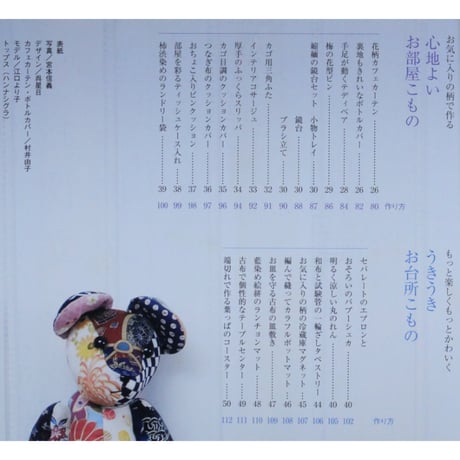 お気に入りの柄で作る
心地よい
お部屋こもの
花柄カフェカーテン 26 80 作り方
裏地もきれいなボトルカバー 26 82
手足が動くテディベア 28 84
梅の花型ピン 29 86
縮緬の鏡台セット 小物トレイ 30 87
鏡台 30 88
ブラシ立て 30 90
カゴ用三角ふた 32 91
インテリアコサージュ 33 92
厚手のふっくらスリッパ 34 94
カゴ目調のクッションカバー 35 95
つなぎ布のクッションカバー 36 96
おちょこ入りピンクッション 37 98
部屋を彩るティッシュケース入れ 38 99
柿渋染めのランドリー袋 39 100
もっと楽しくもっとかわいく
うきうき
お台所こもの
セパレートのエプロンと
おそろいのバブーシュカ 40 102 作り方
明るく涼しい丸のれん 40 105
和布と試験管の一輪ざしタペストリー 44 106
お気に入りの柄の冷蔵庫マグネット 45 108
編んで縫ってカラフルポットマット 46 107
お皿を守る古布の皿敷き 47 109
藍染め絵絣のランチョンマット 48 110
古布で個性的なテーブルセンター 49 111
端切れで作る葉っぱのコースター 50 112
表紙
写真/宮本信義
デザイン/呉星日
カフェカーテン・ボトルカバー/村井由子
モデル/江口より子
トップス(ハンナシグラ)